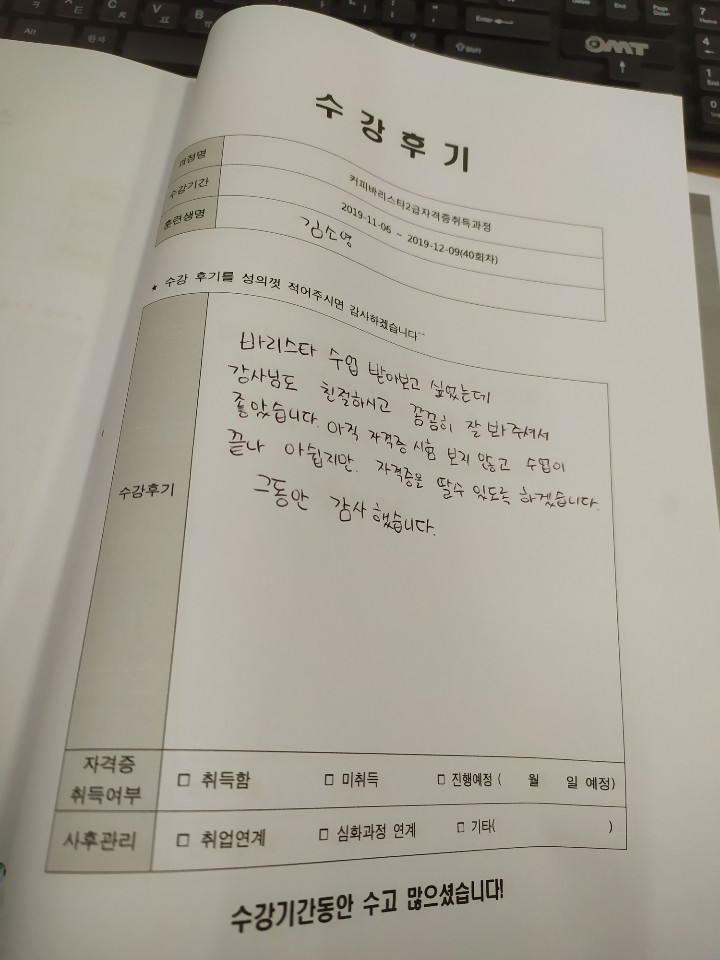 수강후기
과정명 커피바리스타2급자격증취득과정
수강기간 2019-11-06 ~ 2019-12-09(40회차)
훈련생명 김소영
* 수강 후기를 성의껏 적어주시면 감사하겠습니다~
수강후기
바리스타 수업 받아보고 싶었는데
강사님도 친절하시고 꼼꼼히 잘 봐주셔서
좋았습니다. 아직 자격증 시험 보지 않고 수업이
끝나 아쉽지만. 자격증을 딸수 있도록 하겠습니다.
그동안 감사했습니다.
자격증
취득여부
□ 취득함 □ 미취득 □ 진행예정 ( 월 일 예정)
사후관리 □ 취업연계 □ 심화과정 연계 □ 기타( )
수강기간동안 수고 많으셨습니다!
OMT
Enter
Shift
Delete
End
Page Down